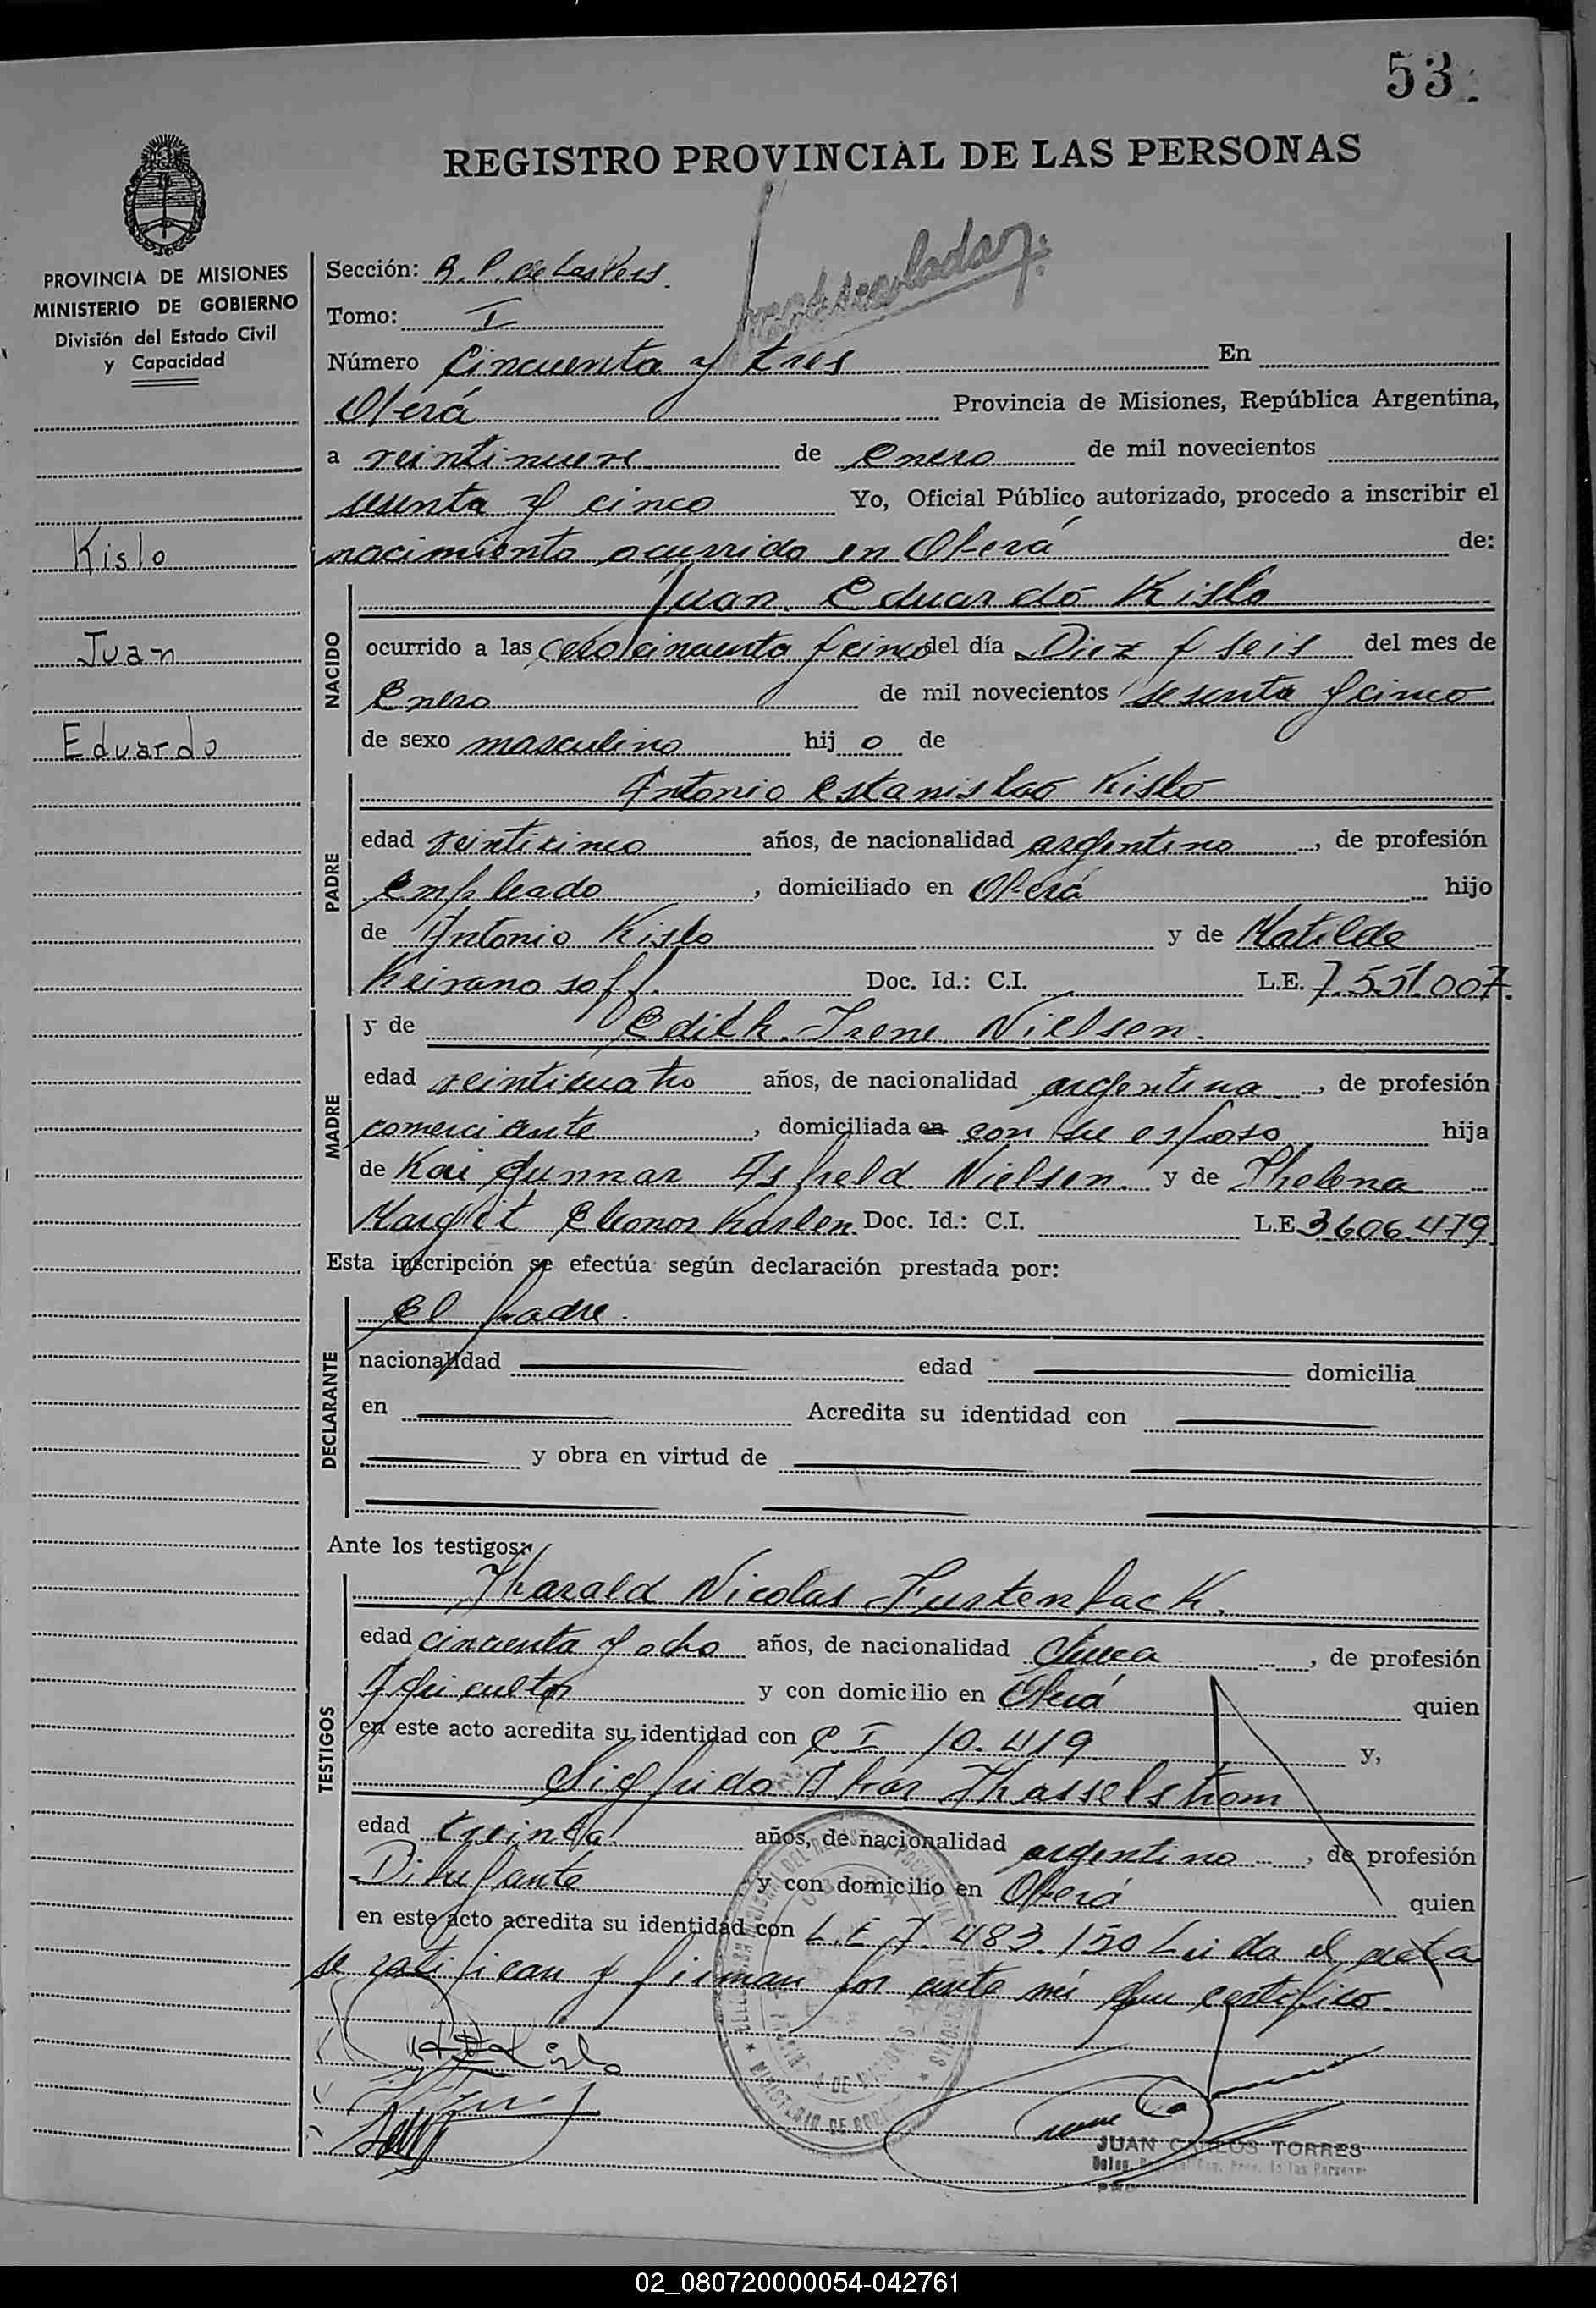 53
REGISTRO PROVINCIAL DE LAS PERSONAS
PROVINCIA DE MISIONES
MINISTERIO DE GOBIERNO
División del Estado Civil
y Capacidad
Kislo
Juan
Eduardo
Sección: R. P. de las Pers.
Tomo: I
Número Cincuenta y tres En
Oberá Provincia de Misiones, República Argentina,
a veintinueve de Enero de mil novecientos
sesenta y cinco Yo, Oficial Público autorizado, procedo a inscribir el
nacimiento ocurrido en Oberá de:
NACIDO
Juan Eduardo Kislo
ocurrido a las cero cincuenta y cinco del día Diez y seis del mes de
Enero de mil novecientos sesenta y cinco
de sexo masculino hij o de
PADRE
Antonio Estanislao Kislo
edad veinticinco años, de nacionalidad argentino, de profesión
Empleado, domiciliado en Oberá hijo
de Antonio Kislo y de Matilde
Doc. Id.: C.I. L.E. 7.551.007.
MADRE
y de Edith Irene Nielsen.
edad veinticuatro años, de nacionalidad argentina, de profesión
comerciante, domiciliada en con su esposo hija
de Kai Gunnar Nielsen. y de Thelena
Margit Eleonor Karlen. Doc. Id.: C.I. L.E. 3606.479
Esta inscripción se efectúa según declaración prestada por:
DECLARANTE
El padre.
nacionalidad edad domicilia
en Acredita su identidad con
y obra en virtud de
Ante los testigos:
TESTIGOS
Tharald Nicolas
edad cincuenta y ocho años, de nacionalidad Sueca, de profesión
Agricultor y con domicilio en Oberá quien
en este acto acredita su identidad con C. I 10.419 y,
Sigfrido Thasselstrom
edad treinta años, de nacionalidad argentino, de profesión
Dibujante y con domicilio en Oberá quien
en este acto acredita su identidad con L.E 7.483.150 Leida el acta
se ratifican y firman por ante mi que certifico.
JUAN CARLOS TORRES
02_080720000054-042761